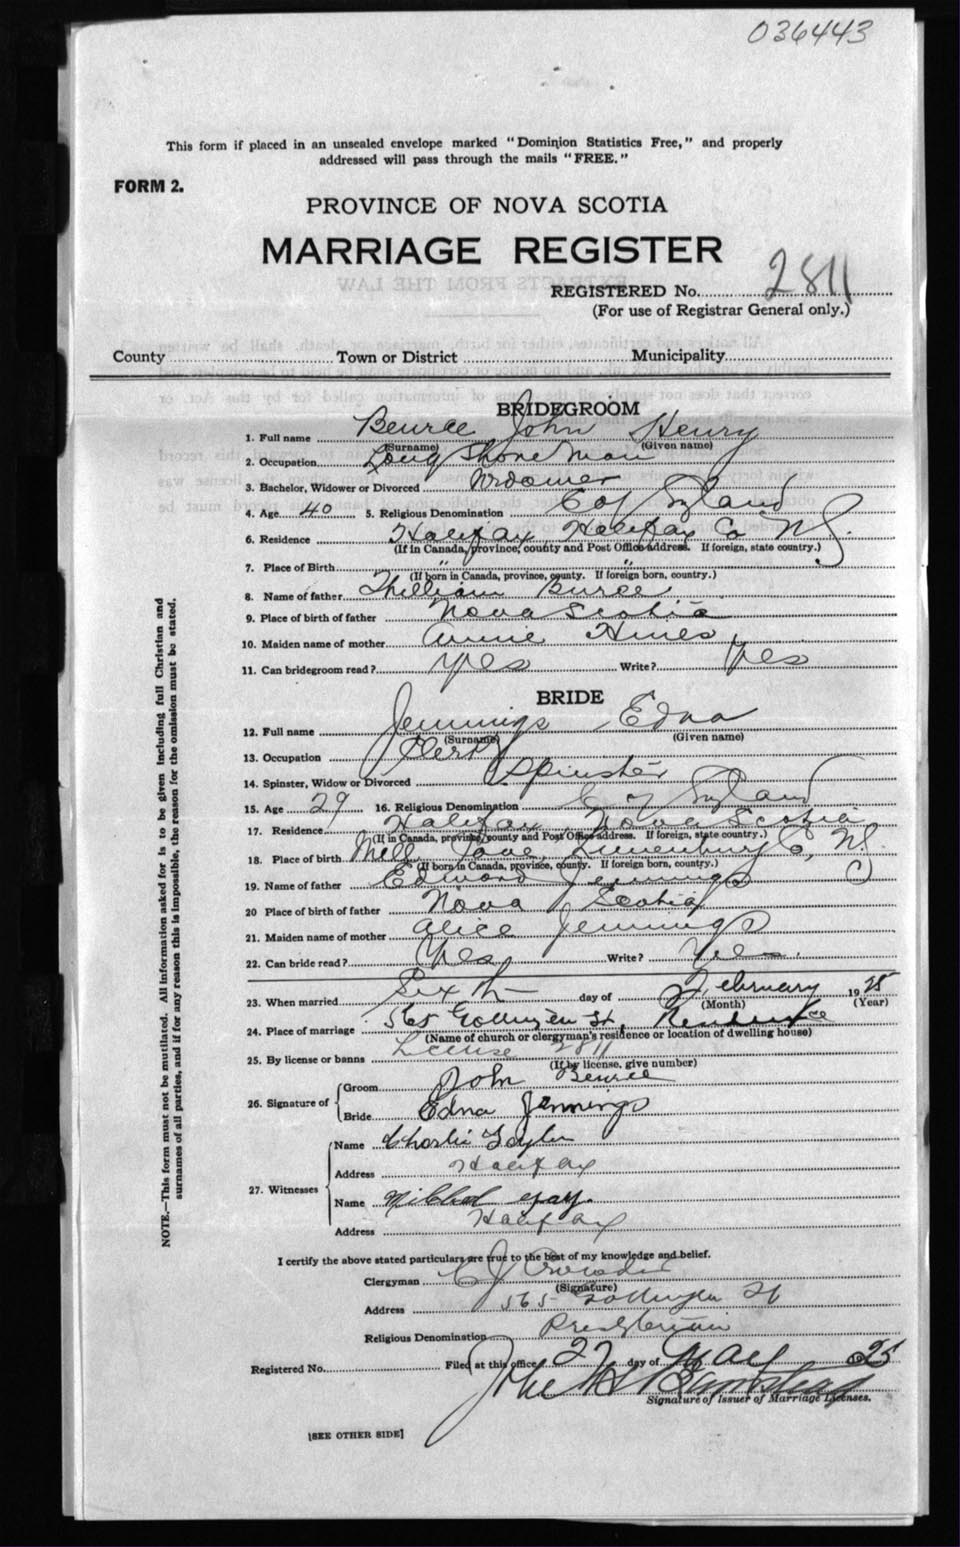 036443
This form if placed in an unsealed envelope marked "Dominion Statistics Free," and properly
addressed will pass through the mails "FREE."
FORM 2.
PROVINCE OF NOVA SCOTIA
MARRIAGE REGISTER
REGISTERED No. 2811
(For use of Registrar General only.)
County Town or District Municipality
BRIDEGROOM
1. Full name John Henry
(Surname) (Given name)
2. Occupation Long Shore Man
3. Bachelor, Widower or Divorced Widower
4. Age 40 5. Religious Denomination C of England
6. Residence Halifax Halifax Co N.S.
(If in Canada, province, county and Post Office address. If foreign, state country.)
7. Place of Birth " "
(If born in Canada, province, county. If foreign born, country.)
8. Name of father William
9. Place of birth of father Nova Scotia
10. Maiden name of mother Annie Hines
11. Can bridegroom read? Yes Write? Yes
BRIDE
12. Full name Jennings Edna
(Surname) (Given name)
13. Occupation Clerk
14. Spinster, Widow or Divorced Spinster
15. Age 29 16. Religious Denomination C of England
17. Residence Halifax, Nova Scotia
(If in Canada, province, county and Post Office address. If foreign, state country.)
18. Place of birth Mill Cove, Lunenburg Co, N.S.
(If born in Canada, province, county. If foreign born, country.)
19. Name of father Edward Jennings
20 Place of birth of father Nova Scotia
21. Maiden name of mother Alice Jennings
22. Can bride read? Yes Write? Yes.
23. When married Sixth day of February 1925
(Month) (Year)
24. Place of marriage 565 Gottingen St, Residence
(Name of church or clergyman's residence or location of dwelling house)
25. By license or banns License 2811
(If by license, give number)
26. Signature of Groom John
Bride Edna Jennings
27. Witnesses Name Charlie Taylor
Address Halifax
Name Mildred Gay.
Address Halifax
I certify the above stated particulars are true to the best of my knowledge and belief.
Clergyman C J
(Signature)
Address 565 Gottingen St
Religious Denomination Presbyterian
Registered No. Filed at this office 27 day of Mar 1925
John H
Signature of Issuer of Marriage Licenses.
[SEE OTHER SIDE]
NOTE.—This form must not be mutilated. All information asked for is to be given including full Christian and
surnames of all parties, and if for any reason this is impossible, the reason for the omission must be stated.